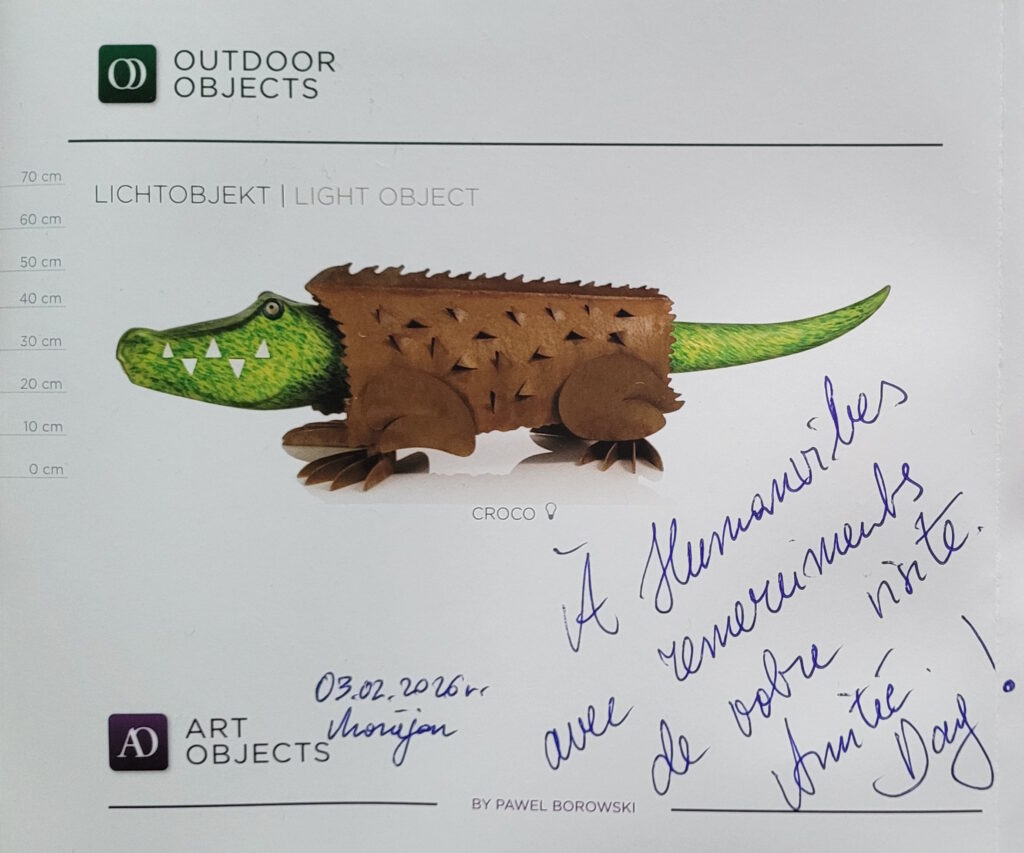 OD
OUTDOOR
OBJECTS
70 cm
60 cm
50 cm
40 cm
30 cm
20 cm
10 cm
0 cm
LICHTOBJEKT | LIGHT OBJECT
CROCO
À Humanvibes
avec remerciments
de votre visite.
Amitié.
Day!
03.02.2026 r.
AO
ART
OBJECTS
BY PAWEL BOROWSKI